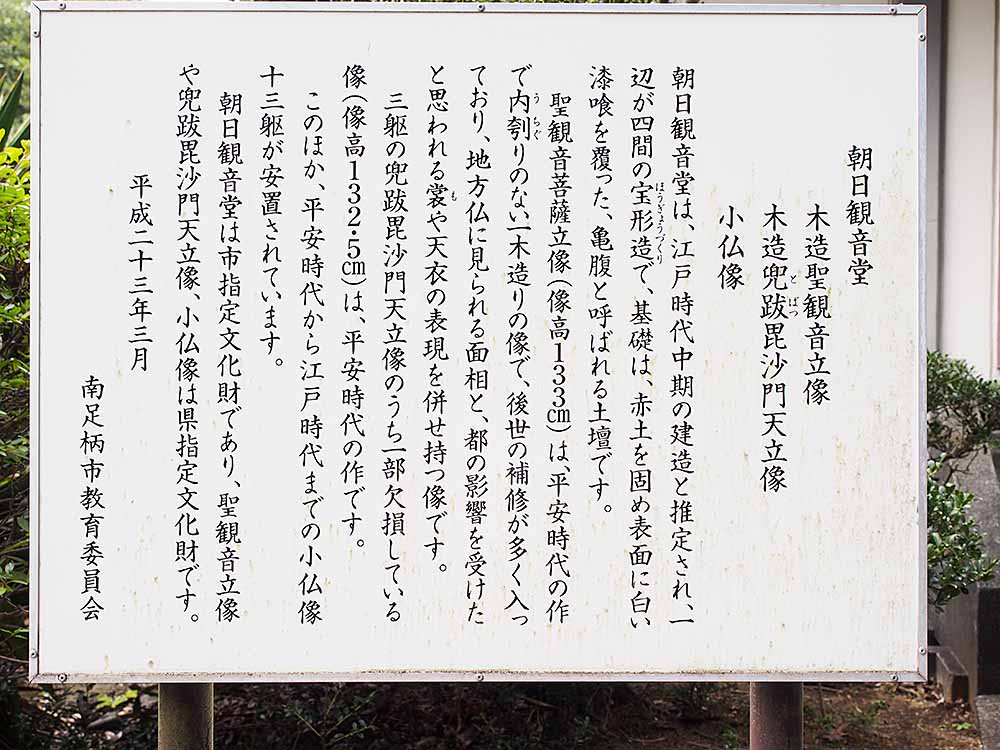 朝日観音堂
木造聖観音立像
木造兜跋毘沙門天立像
小仏像
朝日観音堂は、江戸時代中期の建造と推定され、一
辺が四間の宝形造で、基礎は、赤土を固め表面に白い
漆喰を覆った、亀腹と呼ばれる土壇です。
聖観音菩薩立像(像高133㎝)は、平安時代の作
で内刳りのない一木造りの像で、後世の補修が多く入っ
ており、地方仏に見られる面相と、都の影響を受けた
と思われる裳や天衣の表現を併せ持つ像です。
三躯の兜跋毘沙門天立像のうち一部欠損している
像(像高132・5㎝)は、平安時代の作です。
このほか、平安時代から江戸時代までの小仏像
十三躯が安置されています。
朝日観音堂は市指定文化財であり、聖観音立像
や兜跋毘沙門天立像、小仏像は県指定文化財です。
平成二十三年三月
南足柄市教育委員会